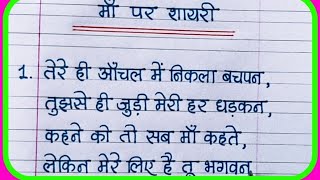 माँ पर शायरी
1. तेरे ही आँचल में निकला बचपन,
तुझसे ही जुड़ी मेरी हर धड़कन,
कहने को तो सब माँ कहते,
लेकिन मेरे लिए है तू भगवन